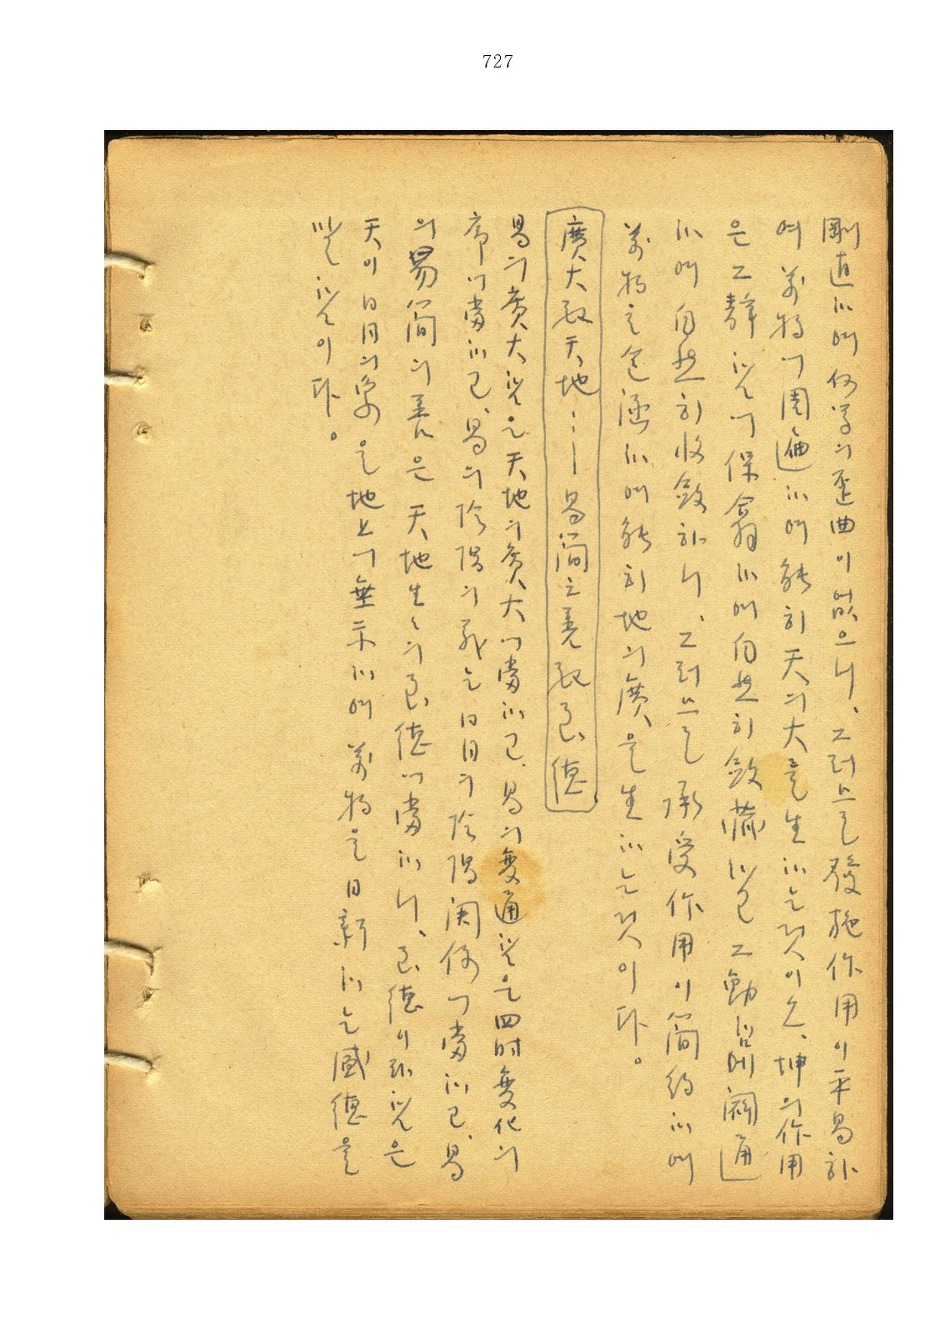 727
剛直하며 何等의 歪曲이 없으니, 그러므로 發施作用이 平易하
여 萬物에 周遍하며 能히 天의 大를 生하는것이오, 坤의 作用
은 그 靜함에 保翕하며 自然히 斂藏하고 그 動함에 闢通
하며 自然히 收斂하니, 그러므로 承受作用이 簡約하며
萬物을 包涵하며 能히 地의 廣을 生하는것이다。
廣大配天地……易簡之善配至德
易의 廣大함은 天地의 廣大에 當하고, 易의 變通함은 四時變化의
序에 當하고, 易의 陰陽의 義는 日月의 陰陽關係에 當하고, 易
의 易簡의 善은 天地生生의 至德에 當하니, 至德이라함은
天이 日月의 象을 地上에 垂示하며 萬物을 日新하는 盛德을
말함이다。